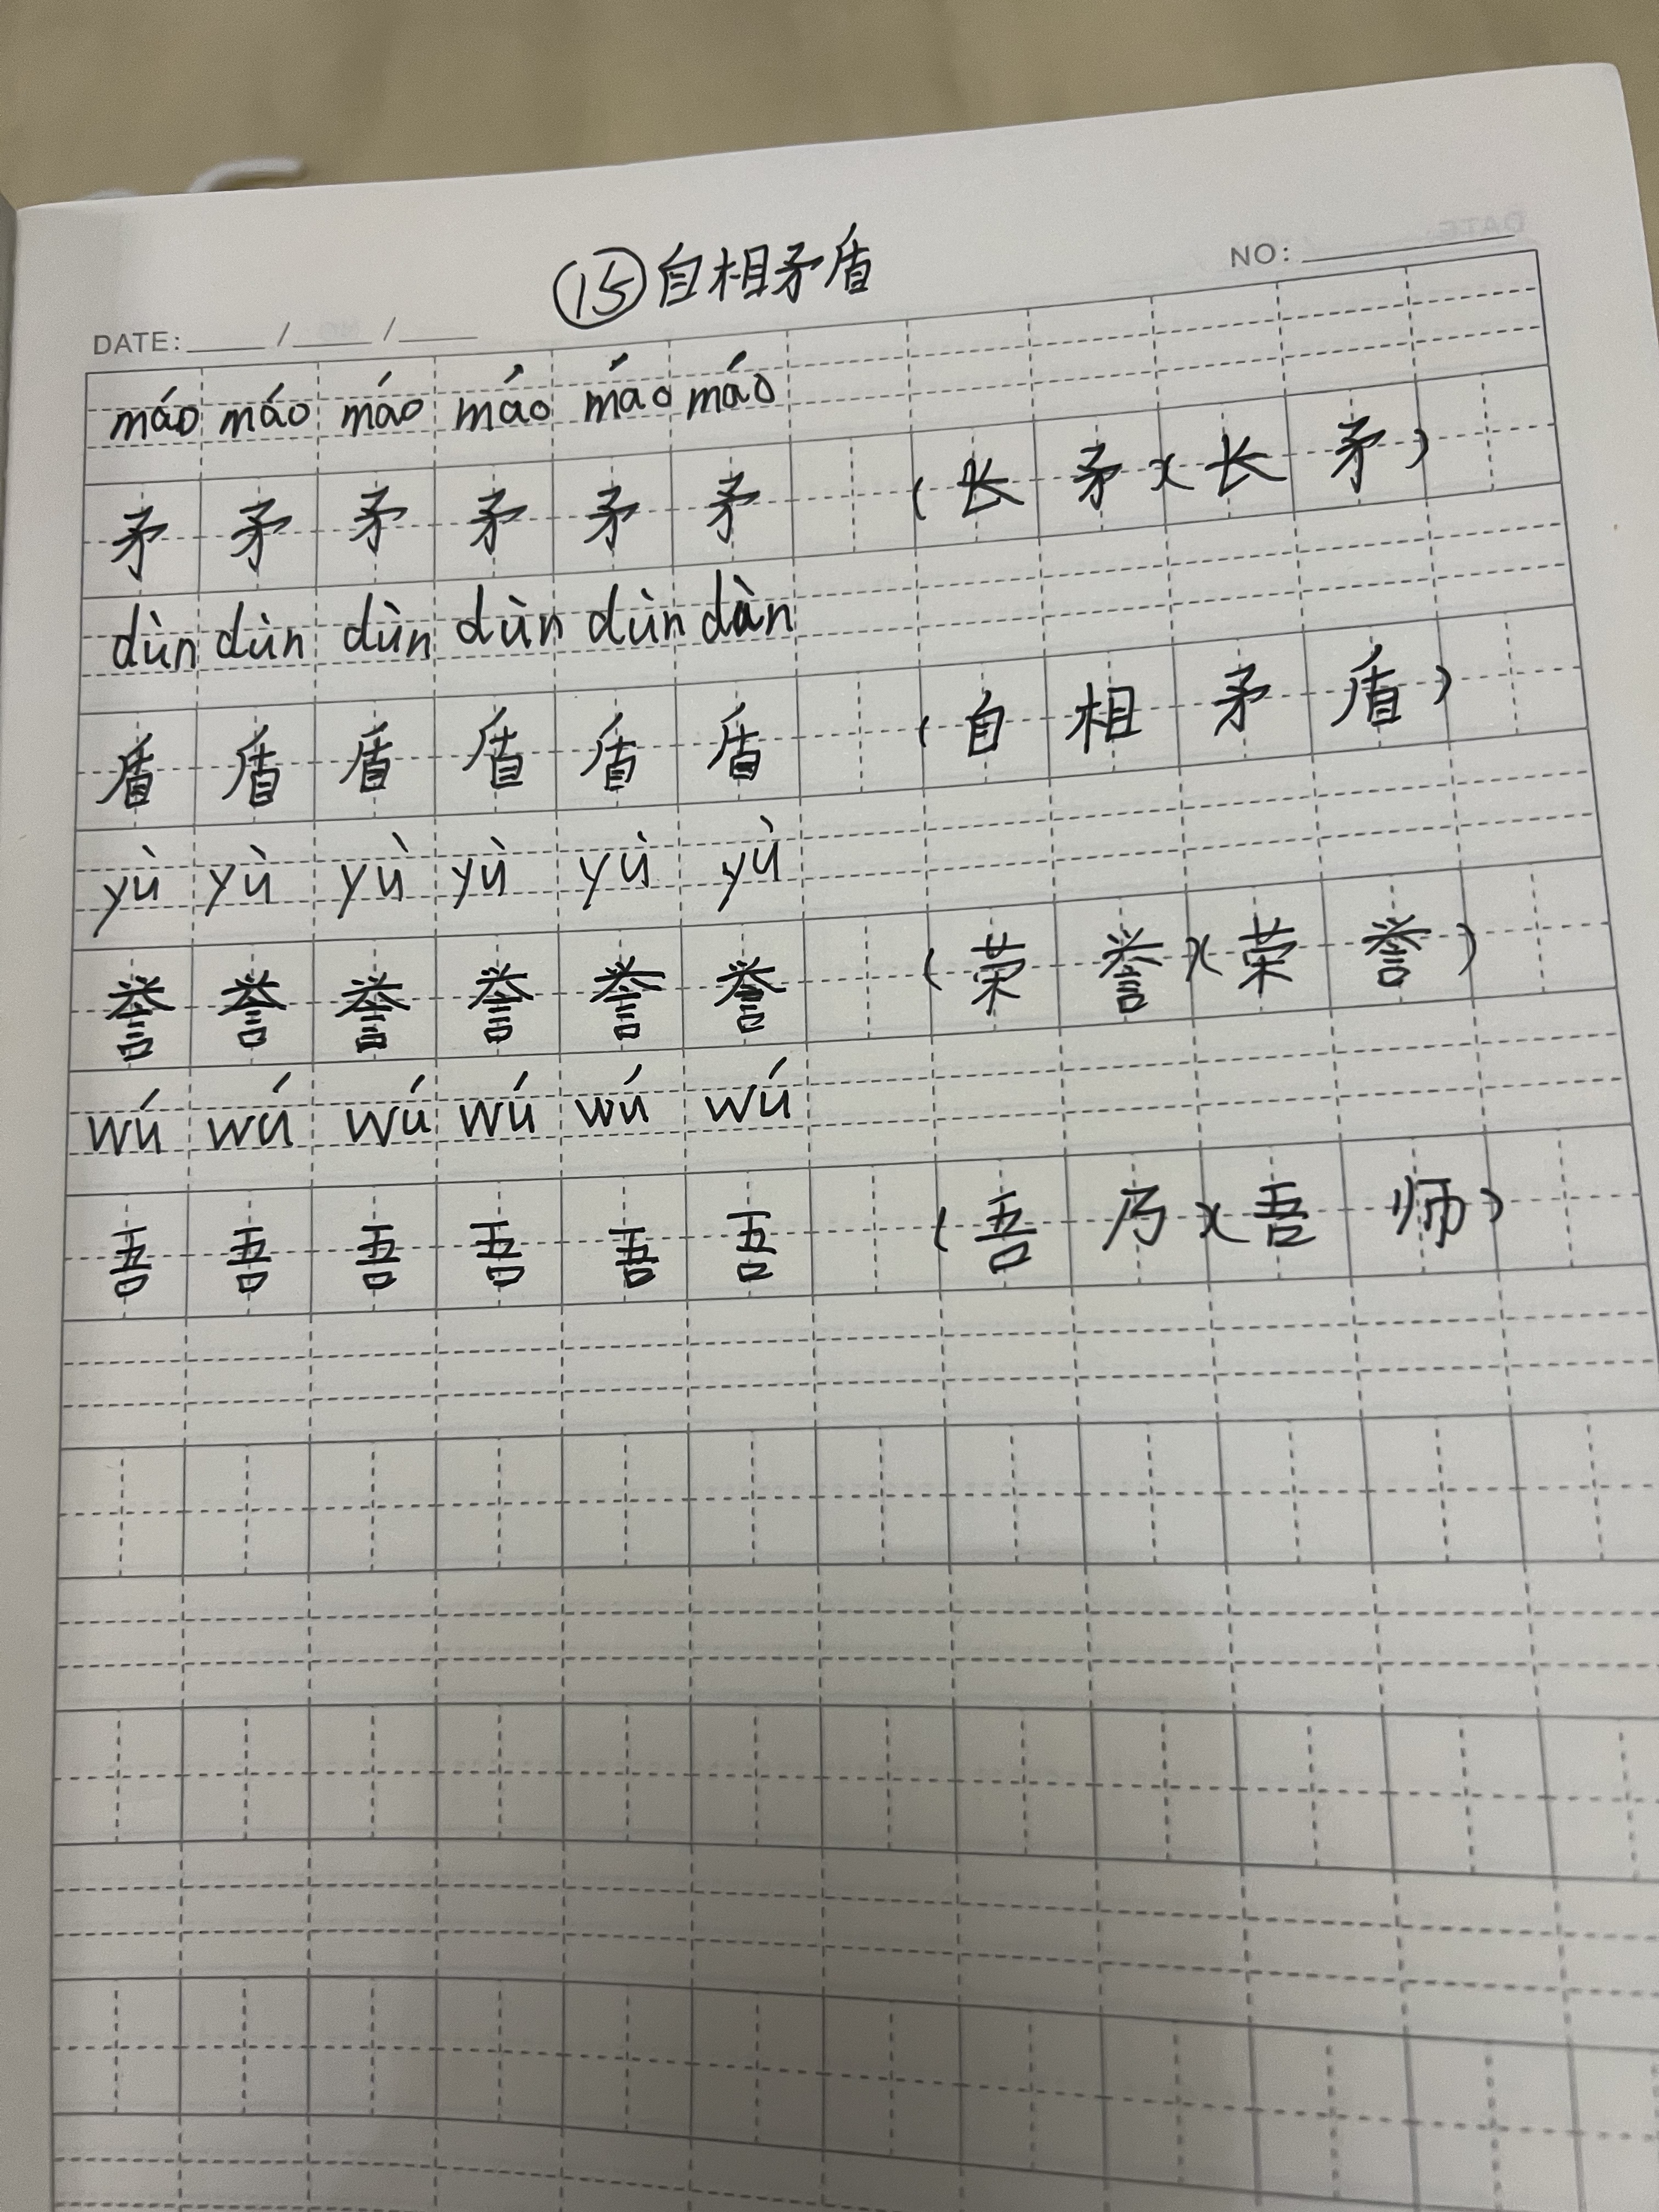 ⑮自相矛盾
NO:
DATE: / /
máo máo máo máo máo máo
矛 矛 矛 矛 矛 矛 (长 矛)(长 矛)
dùn dùn dùn dùn dùn dàn
盾 盾 盾 盾 盾 盾 (自 相 矛 盾)
yù yù yù yù yù yù
誉 誉 誉 誉 誉 誉 (荣 誉)(荣 誉)
wú wú wú wú wú wú
吾 吾 吾 吾 吾 吾 (吾 乃)(吾 师)